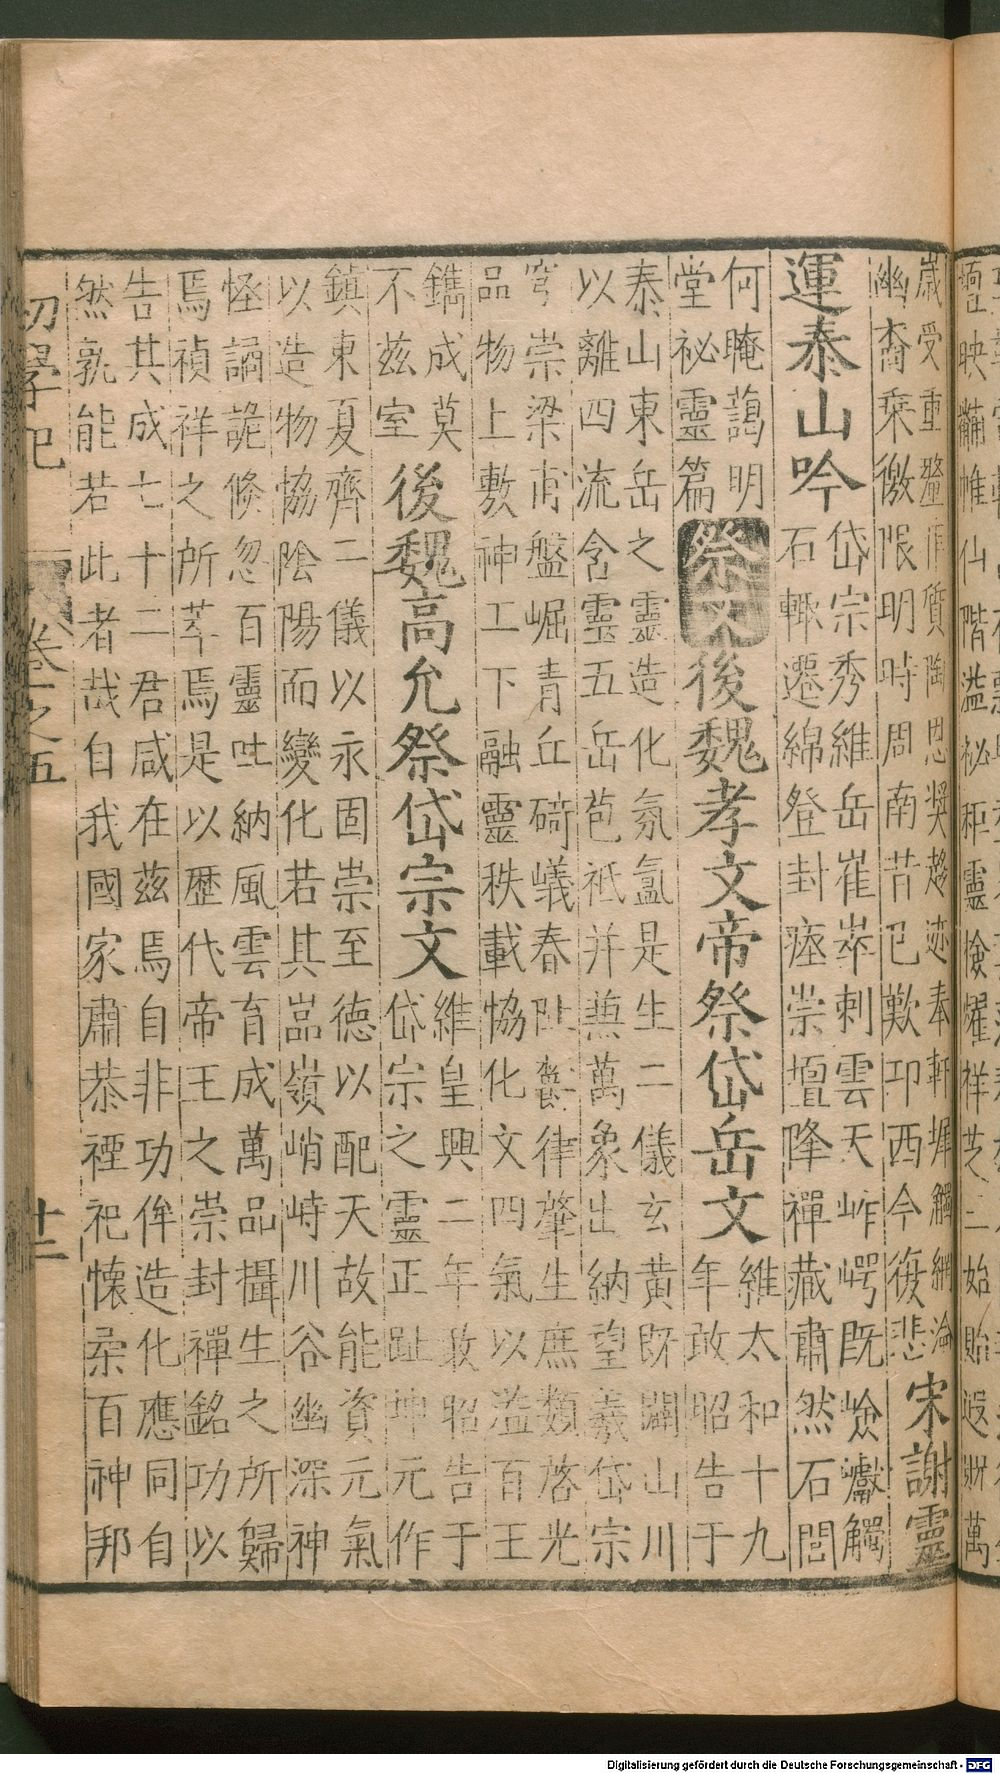 歲受重釐用質陶恩奬趨迹奉軒墀觸網淪
幽裔乘徼限明時周南昔已歎卭西今復悲
宋謝靈
運泰山吟
岱宗秀維岳崔崒刺雲天岞㟧既嶮巘觸
石輙遷綿登封瘞崇壇降禪藏肅然石閭
何晻藹明
堂祕靈篇
祭文
後魏孝文帝祭岱岳文
維太和十九
年敢昭告于
泰山東岳之靈造化氛氳是生二儀玄黃既闢山川
以離四流含靈五岳苞祗并兼萬象出納望羲岱宗
穹崇梁甫盤崛青丘碕嶬春阯鬱律肇生庶類啓光
品物上敷神工下融靈秩載協化文四氣以溢百王
鐫成莫
不茲室
後魏高允祭岱宗文
維皇興二年敢昭告于
岱宗之靈正趾坤元作
鎮東夏齊二儀以永固崇至德以配天故能資元氣
以造物協陰陽而變化若其嵓嶺峭峙川谷幽深神
怪譎詭倏忽百靈吐納風雲育成萬品攝生之所歸
焉禎祥之所萃焉是以歷代帝王之崇封禪銘功以
告其成七十二君咸在茲焉自非功侔造化應同自
然孰能若此者哉自我國家肅恭禋祀懷柔百神邦
初學記
卷之五
十二
Digitalisierung gefördert durch die Deutsche Forschungsgemeinschaft - DFG